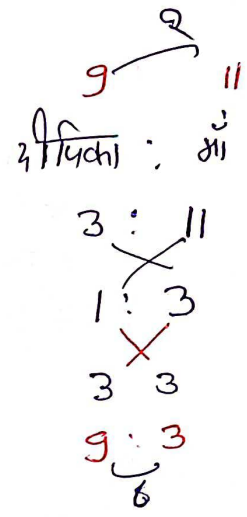 2
9 11
दीपिका : माँ
3 : 11
1 : 3
3 3
9 : 3
6